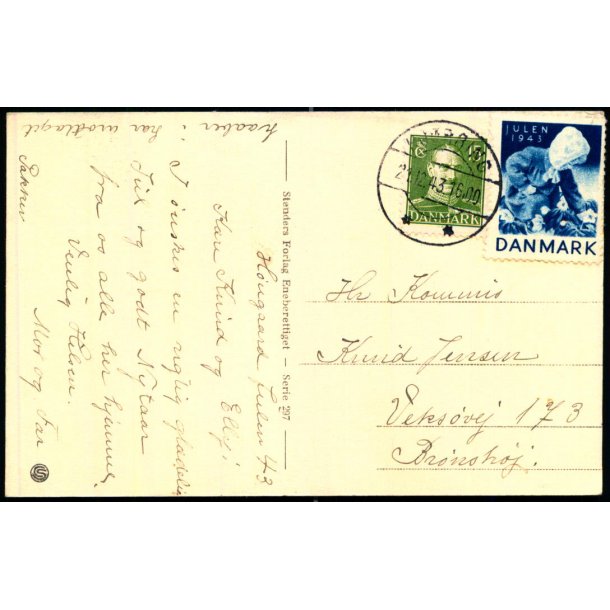 Haugaard Julen 43
Kære Knud og Elly!
I ønskes en rigtig glædelig
Jul og godt Nytaar
fra os alle her hjemme.
Venlig Hilsen.
Mor og Far
haaber i har modtaget
Pakken
Stenders Forlag Eneberettiget — Serie 297
24.12.43.16.00
DANMARK
JULEN
1943
DANMARK
Hr Kommis
Knud Jensen
Veksøvej 173
Brønshøj.